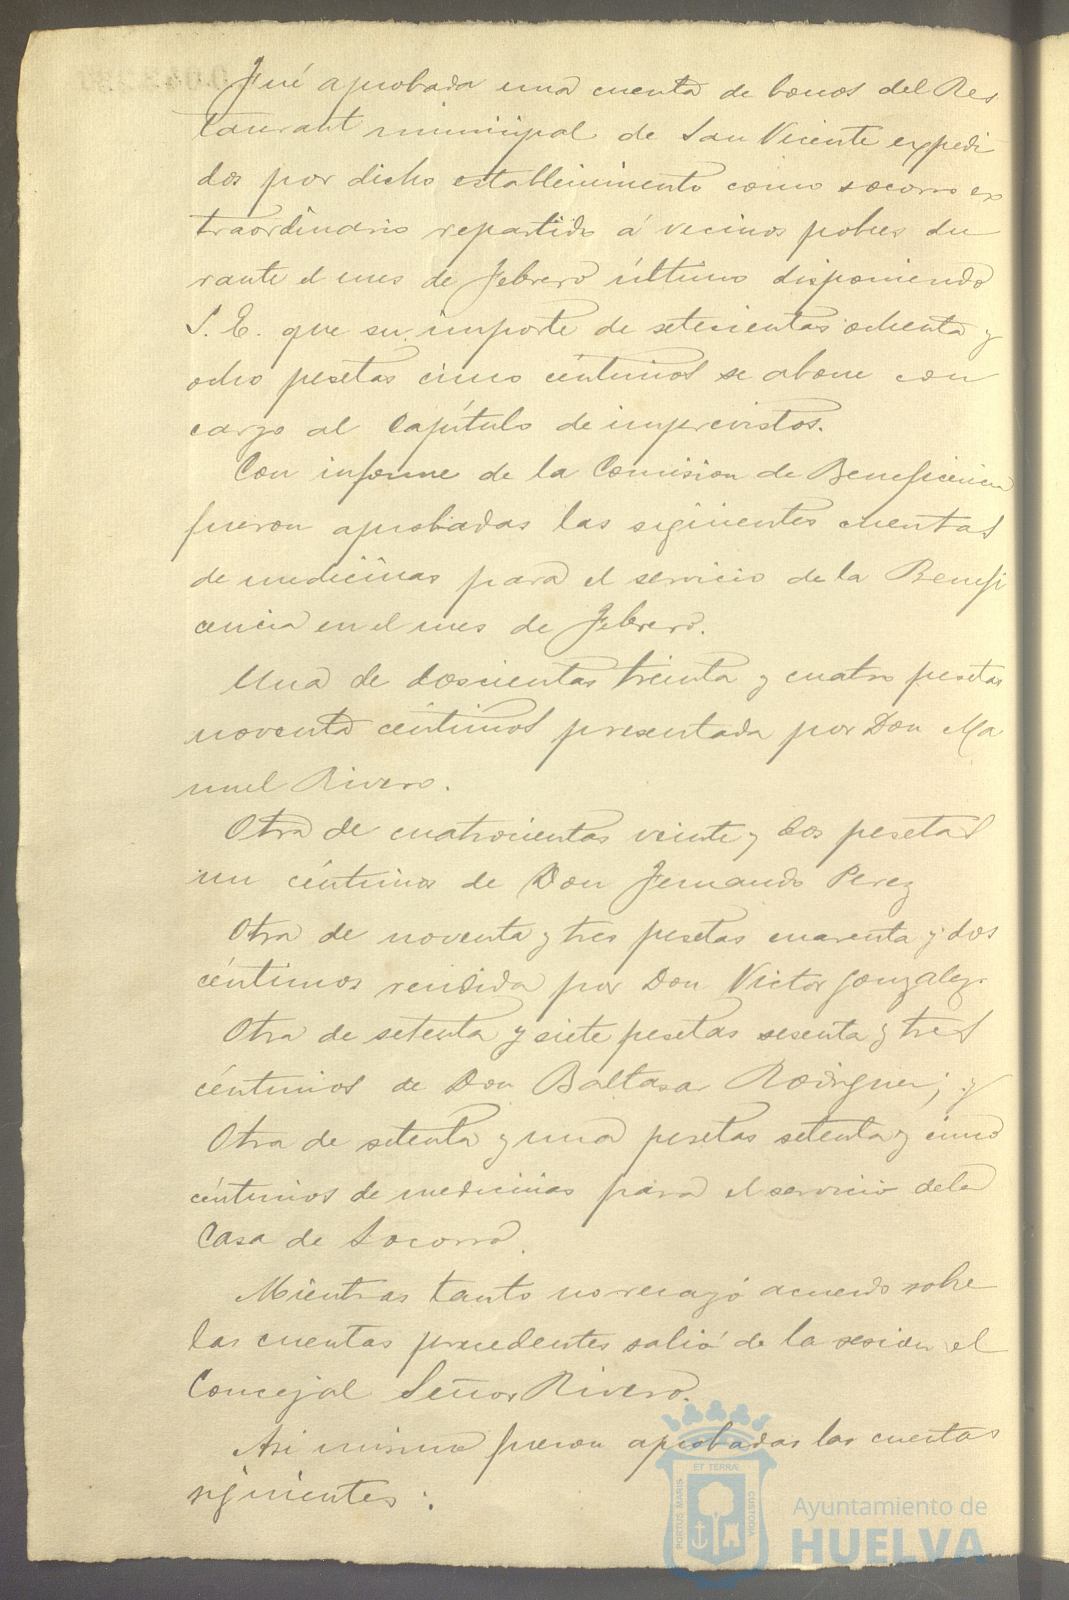 Fué aprobada una cuenta de bonos del Res
taurant municipal de San Vicente expedi
dos por dicho establecimiento como socorro ex
traordinario repartido á vecinos pobres du
rante el mes de Febrero último disponiendo
S. E. que su importe de setecientas ochenta y
ocho pesetas cinco céntimos se abone con
cargo al Capítulo de imprevistos.
Con informe de la Comision de Beneficencia
fueron aprobadas las siguientes cuentas
de medicinas para el servicio de la Benefi
cencia en el mes de Febrero.
Una de doscientas treinta y cuatro pesetas
noventa céntimos presentada por Don Ma
nuel Rivero.
Otra de cuatrocientas veinte y dos pesetas
un céntimos de Don Fernando Perez
Otra de noventa y tres pesetas cuarenta y dos
céntimos rendida por Don Victor Gonzalez.
Otra de setenta y siete pesetas sesenta y tres
céntimos de Don Baltasar Rodriguez; y
Otra de setenta y una pesetas setenta y cinco
céntimos de medicinas para el servicio de la
Casa de Socorro.
Mientras tanto no recayó acuerdo sobre
las cuentas precedentes salió de la sesion el
Concejal Señor Rivero.
Asi mismo fueron aprobadas las cuentas
siguientes:
ET TERRA
PORTUS MARIS
CUSTODIA
Ayuntamiento de
HUELVA